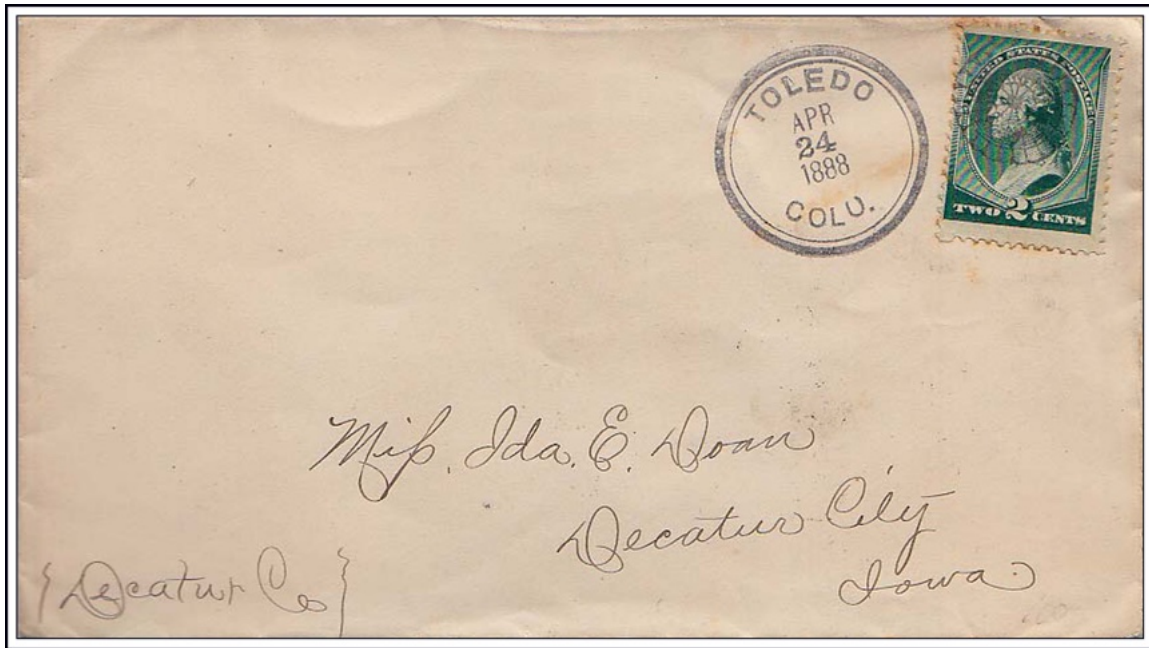 TOLEDO
APR
24
1888
COLO.
UNITED STATES POSTAGE
TWO 2 CENTS
Miſs. Ida. E. Doan
Decatur City
Iowa.
{Decatur Co}